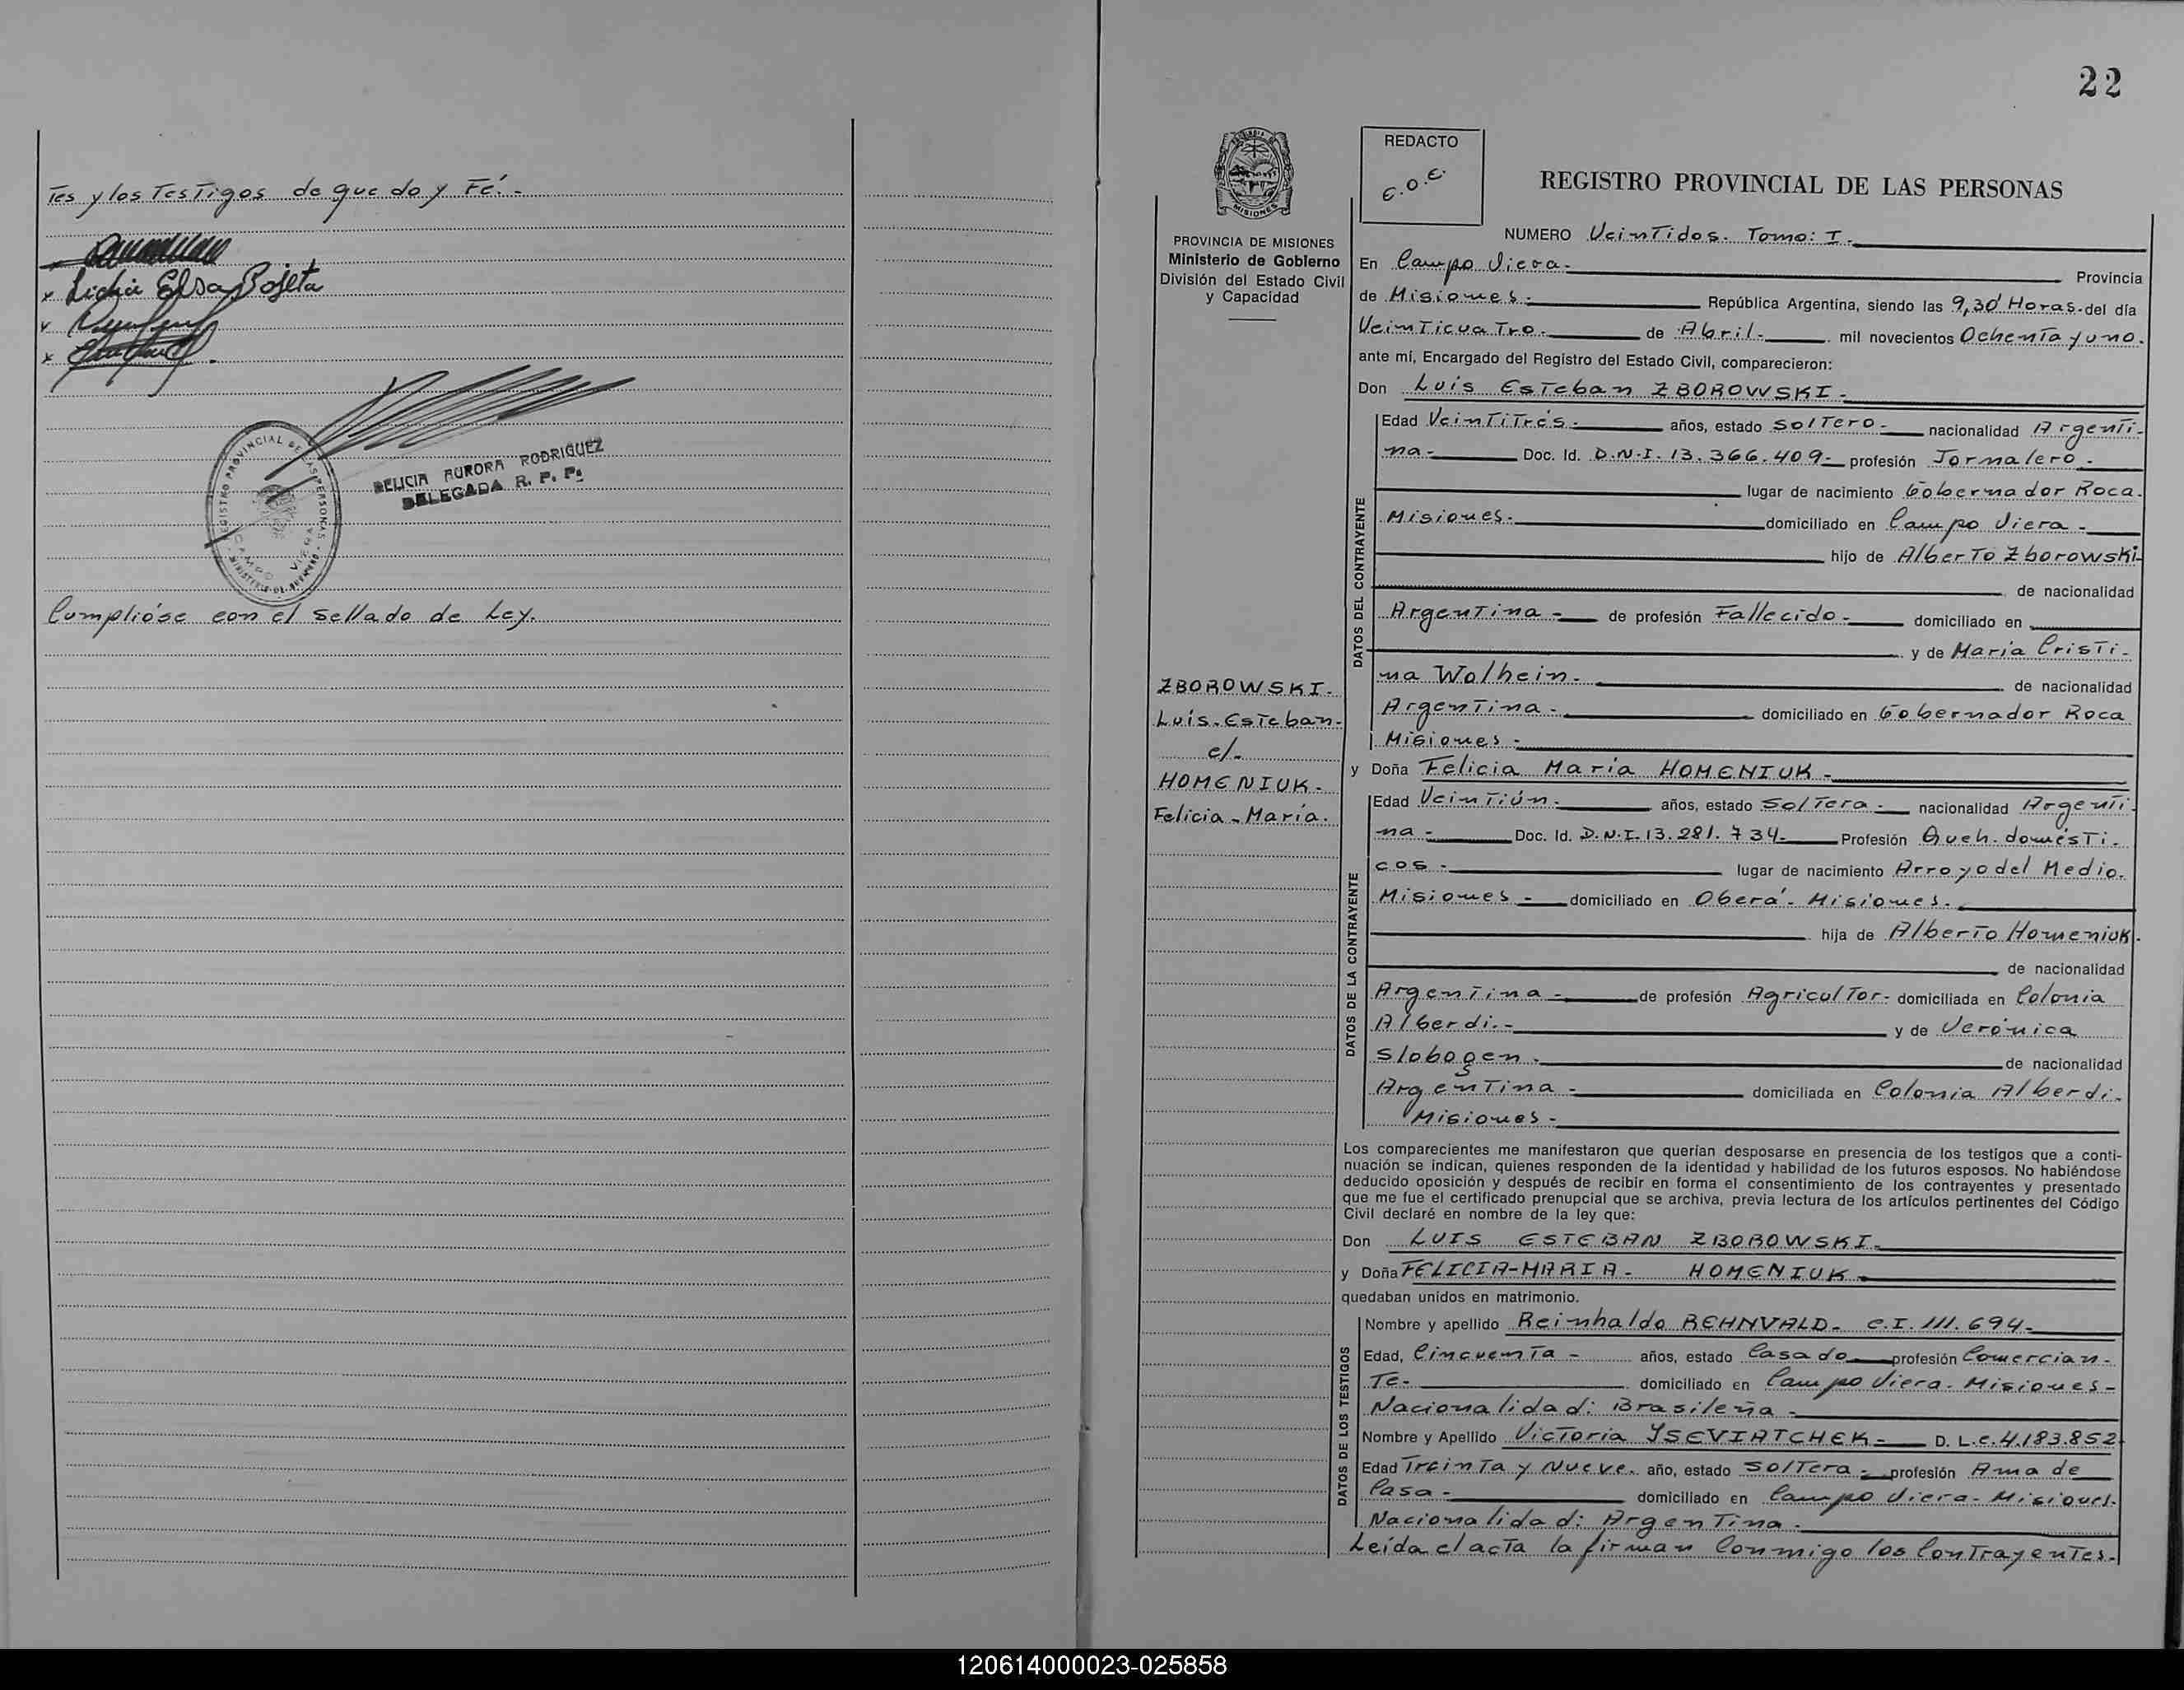 Tes y los Testigos de que doy Fé.-
x Lidia Elsa Bojeta
REGISTRO PROVINCIAL DE LAS PERSONAS
CAMPO VIERA
DELICIA AURORA RODRIGUEZ
DELEGADA R. P. P.
Cumplióse con el sellado de Ley.
22
PROVINCIA DE MISIONES
Ministerio de Gobierno
División del Estado Civil
y Capacidad
ZBOROWSKI.
Luis-Esteban-
c/-
HOMENIUK-
Felicia-María.
REDACTO
E.O.E.
REGISTRO PROVINCIAL DE LAS PERSONAS
NUMERO Veintidos. Tomo: I.
En Campo Viera- Provincia
de Misiones- República Argentina, siendo las 9,30 Horas.del día
Veinticuatro- de Abril- mil novecientos Ochenta y uno.
ante mí, Encargado del Registro del Estado Civil, comparecieron:
Don Luis Esteban ZBOROWSKI-
DATOS DEL CONTRAYENTE
Edad Veintitrés- años, estado Soltero- nacionalidad Argenti-
na- Doc. Id. D.N.I. 13.366.409- profesión Jornalero-
lugar de nacimiento Gobernador Roca.
Misiones- domiciliado en Campo Viera-
hijo de Alberto Zborowski-
de nacionalidad
Argentina- de profesión Fallecido- domiciliado en
y de María Cristi-
na Wolhein- de nacionalidad
Argentina- domiciliado en Gobernador Roca
Misiones-
y Doña Felicia María HOMENIUK-
DATOS DE LA CONTRAYENTE
Edad Veintiún- años, estado Soltera- nacionalidad Argenti-
na- Doc. Id. D.N.I. 13.281.734- Profesión Queh. domésti-
cos- lugar de nacimiento Arroyo del Medio.
Misiones- domiciliado en Oberá- Misiones.
hija de Alberto Homeniuk.
de nacionalidad
Argentina- de profesión Agricultor- domiciliada en Colonia
Alberdi.- y de Verónica
Slobogen. de nacionalidad
Argentina- domiciliada en Colonia Alberdi-
Misiones-
Los comparecientes me manifestaron que querían desposarse en presencia de los testigos que a conti-
nuación se indican, quienes responden de la identidad y habilidad de los futuros esposos. No habiéndose
deducido oposición y después de recibir en forma el consentimiento de los contrayentes y presentado
que me fue el certificado prenupcial que se archiva, previa lectura de los artículos pertinentes del Código
Civil declaré en nombre de la ley que:
Don LUIS ESTEBAN ZBOROWSKI-
y Doña FELICIA-MARIA- HOMENIUK-
quedaban unidos en matrimonio.
DATOS DE LOS TESTIGOS
Nombre y apellido Reinhaldo REHNVALD- C.I. 111.694-
Edad, Cincuenta- años, estado Casado profesión Comercian-
Te- domiciliado en Campo Viera- Misiones-
Nacionalidad: Brasileña-
Nombre y Apellido Victoria YSEVIATCHEK- D. L.C. 4.183.852
Edad Treinta y Nueve. año, estado Soltera- profesión Ama de
Casa- domiciliado en Campo Viera- Misiones-
Nacionalidad: Argentina-
Leída el acta la firman Conmigo los Contrayentes-
120614000023-025858